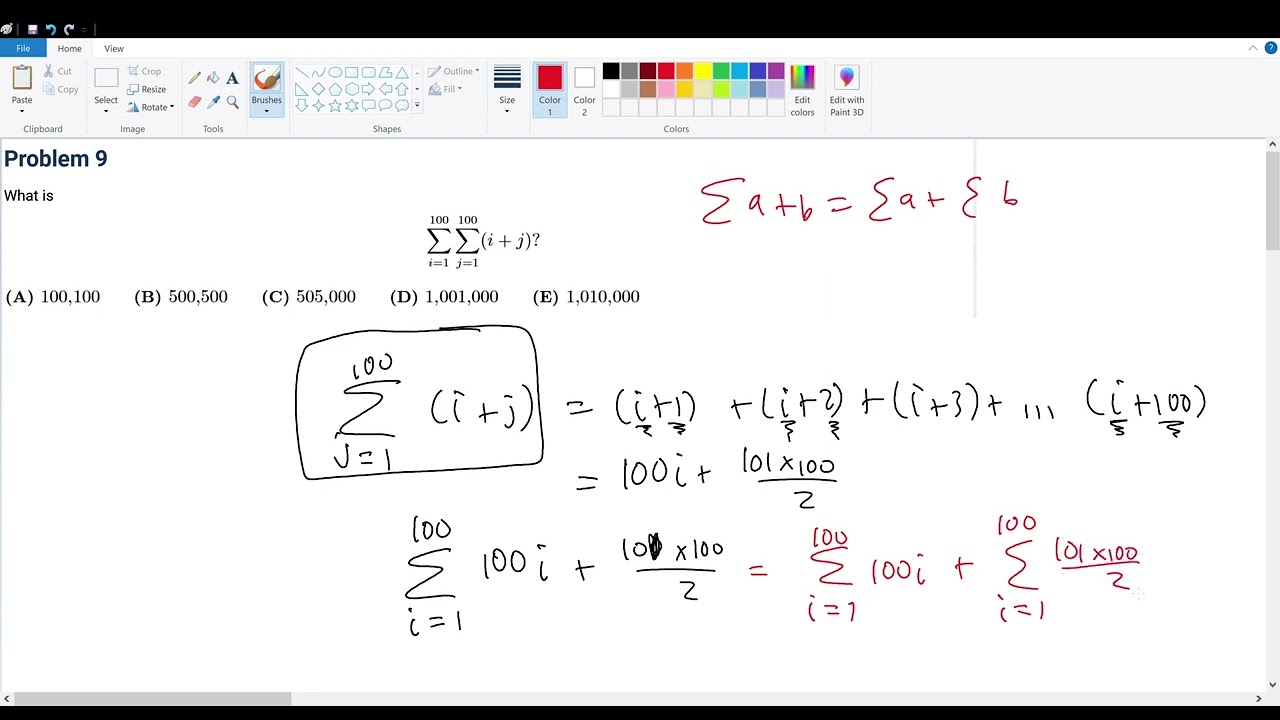 File Home View
Paste Cut Copy Select Crop Resize Rotate Brushes Outline Fill Size Color 1 Color 2 Edit colors Edit with Paint 3D
Clipboard Image Tools Shapes Colors
Problem 9
What is
∑a+b = ∑a + ∑ b
100 100
∑ ∑ (i + j)?
i=1 j=1
(A) 100,100 (B) 500,500 (C) 505,000 (D) 1,001,000 (E) 1,010,000
100
∑ (i+j) = (i+1) + (i+2) + (i+3) + ... (i+100)
J=1
= 100i + 101×100
2
100 100 100
∑ 100i + 101 × 100 / 2 = ∑ 100i + ∑ 101×100 / 2
i=1 i=1 i=1